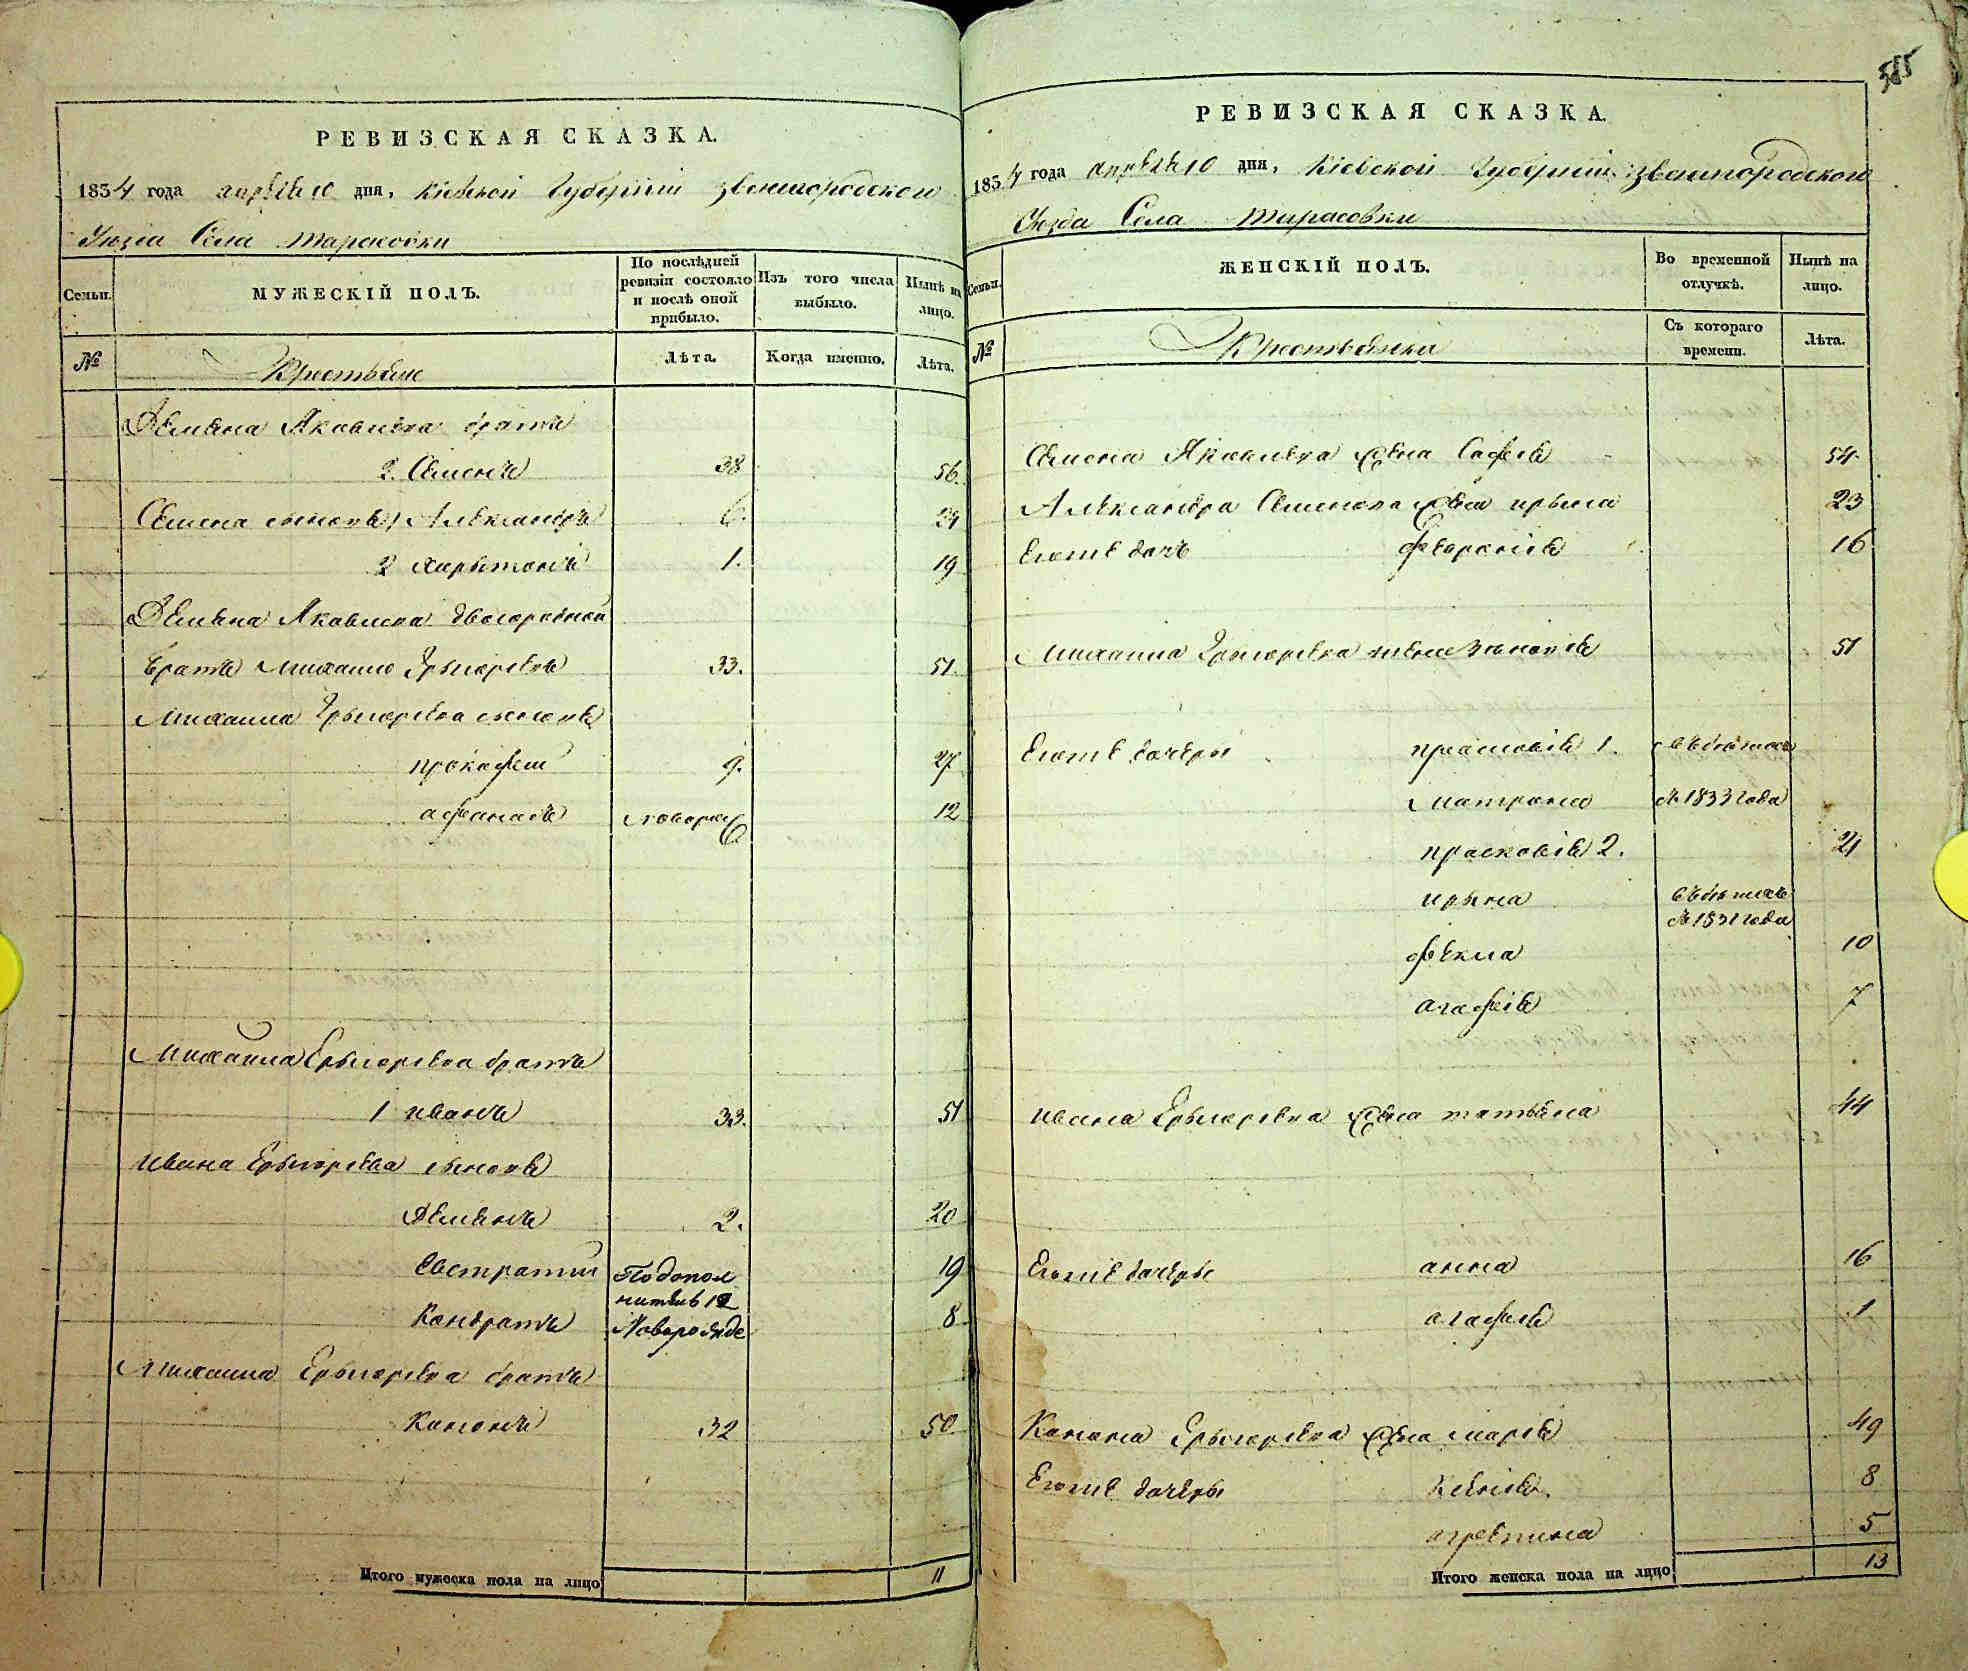 РЕВИЗСКАЯ СКАЗКА.
1854 года апреля 10 дня, Кіевской Губерніи Звенигородского
Уезда Села Тарасовки
Семьи.
МУЖЕСКІЙ ПОЛЪ.
По послѣдней ревизіи состояло и послѣ оной прибыло.
Изъ того числа выбыло.
Нынѣ на лицо.
№
Крестьяне
Лѣта.
Когда именно.
Лѣта.
Демяна Яковлева братъ
2. Семенъ 38 56.
Семена сыновя 1 Александръ 6. 24
2 Харытонъ 1. 19
Демяна Яковлева двоюродной
братъ Михаило Грыгорьевъ 33. 51.
Михаила Грыгорева сыновя
прокофей 9. 27
афанасъ новорож 12
Михаила Грыгорева братъ
1 иванъ 33. 51
ивана Грыгорева сыновя
Демянъ 2. 20
Евстратий Подопол 19
нител 12
Кондратъ Новорожде 8
Михаила Грыгорева братъ
Кононъ 32 50
Итого мужеска пола на лицо 11
585
РЕВИЗСКАЯ СКАЗКА.
1854 года апреля 10 дня, Кіевской Губерніи Звенигородского
Уезда Села Тарасовки
Семьи.
ЖЕНСКІЙ ПОЛЪ.
Во временной отлучкѣ.
Нынѣ на лицо.
№
Крестьянки
Съ котораго времени.
Лѣта.
Семена Яковлева жена Софія 54
Александра Семенова жена ирына 23
Егоже дочь февронія 16
Михаила Грыгорева жена Зѣновія 51
Егоже дочеры прасковія 1.
матрона 1833 года
прасковія 2. 21
ирына
1831 года
фекла 10
агафія 7
ивана Грыгорева жена татьяна 44
Егоже дочеры анна 16
агафія 1
Конона Грыгорева жена марія 49
Егоже дочеры Ксенія 8
агрепина 5
Итого женска пола на лицо 13